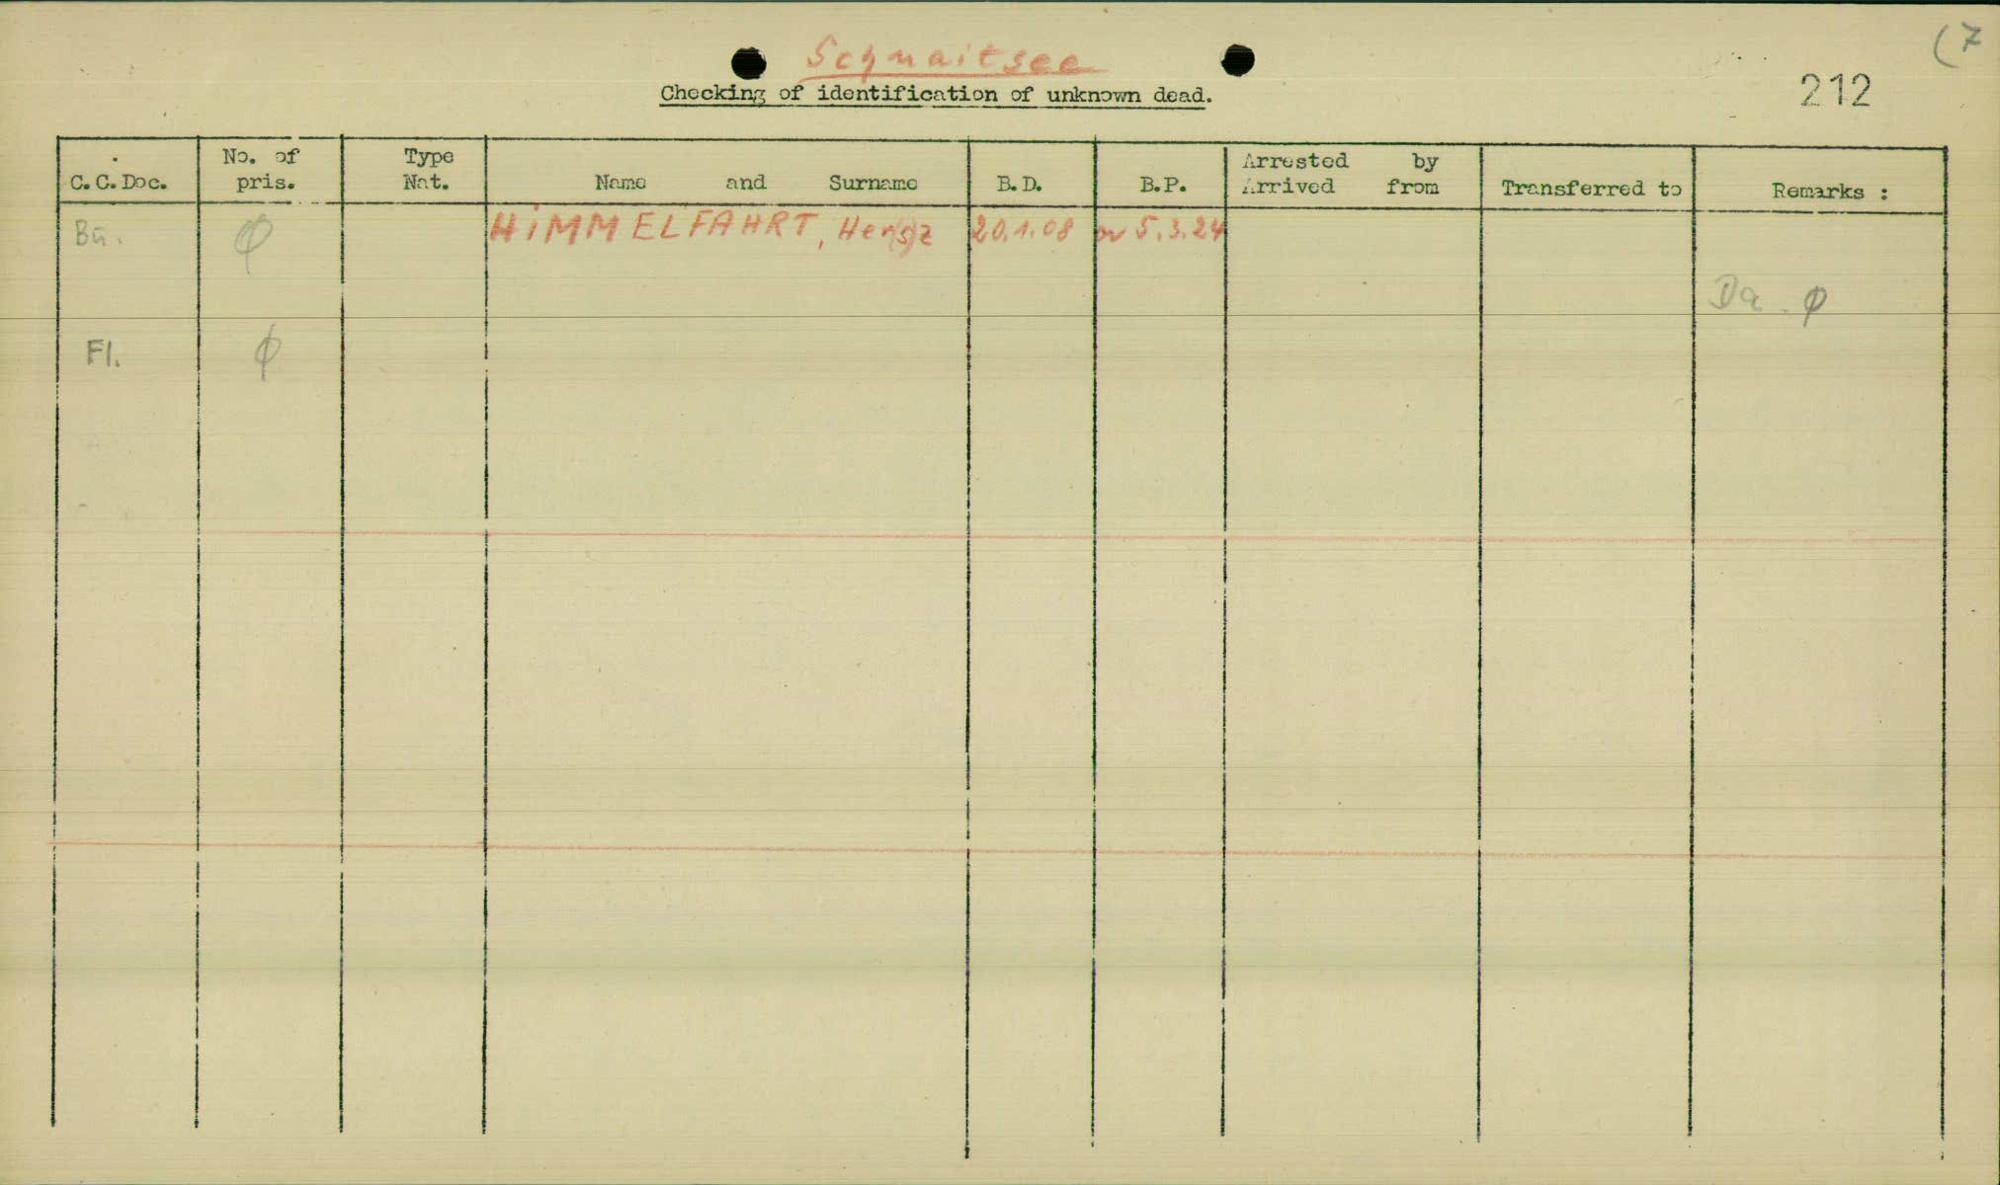 (7
Schnaitsee
Checking of identification of unknown dead.
212
C.C.Doc. No. of pris. Type Nat. Name and Surname B.D. B.P. Arrested by Arrived from Transferred to Remarks :
Bu. ϕ HiMMELFAHRT, Her(s)z 20.1.08 or 5.3.24
Da. ϕ
Fl. ϕ